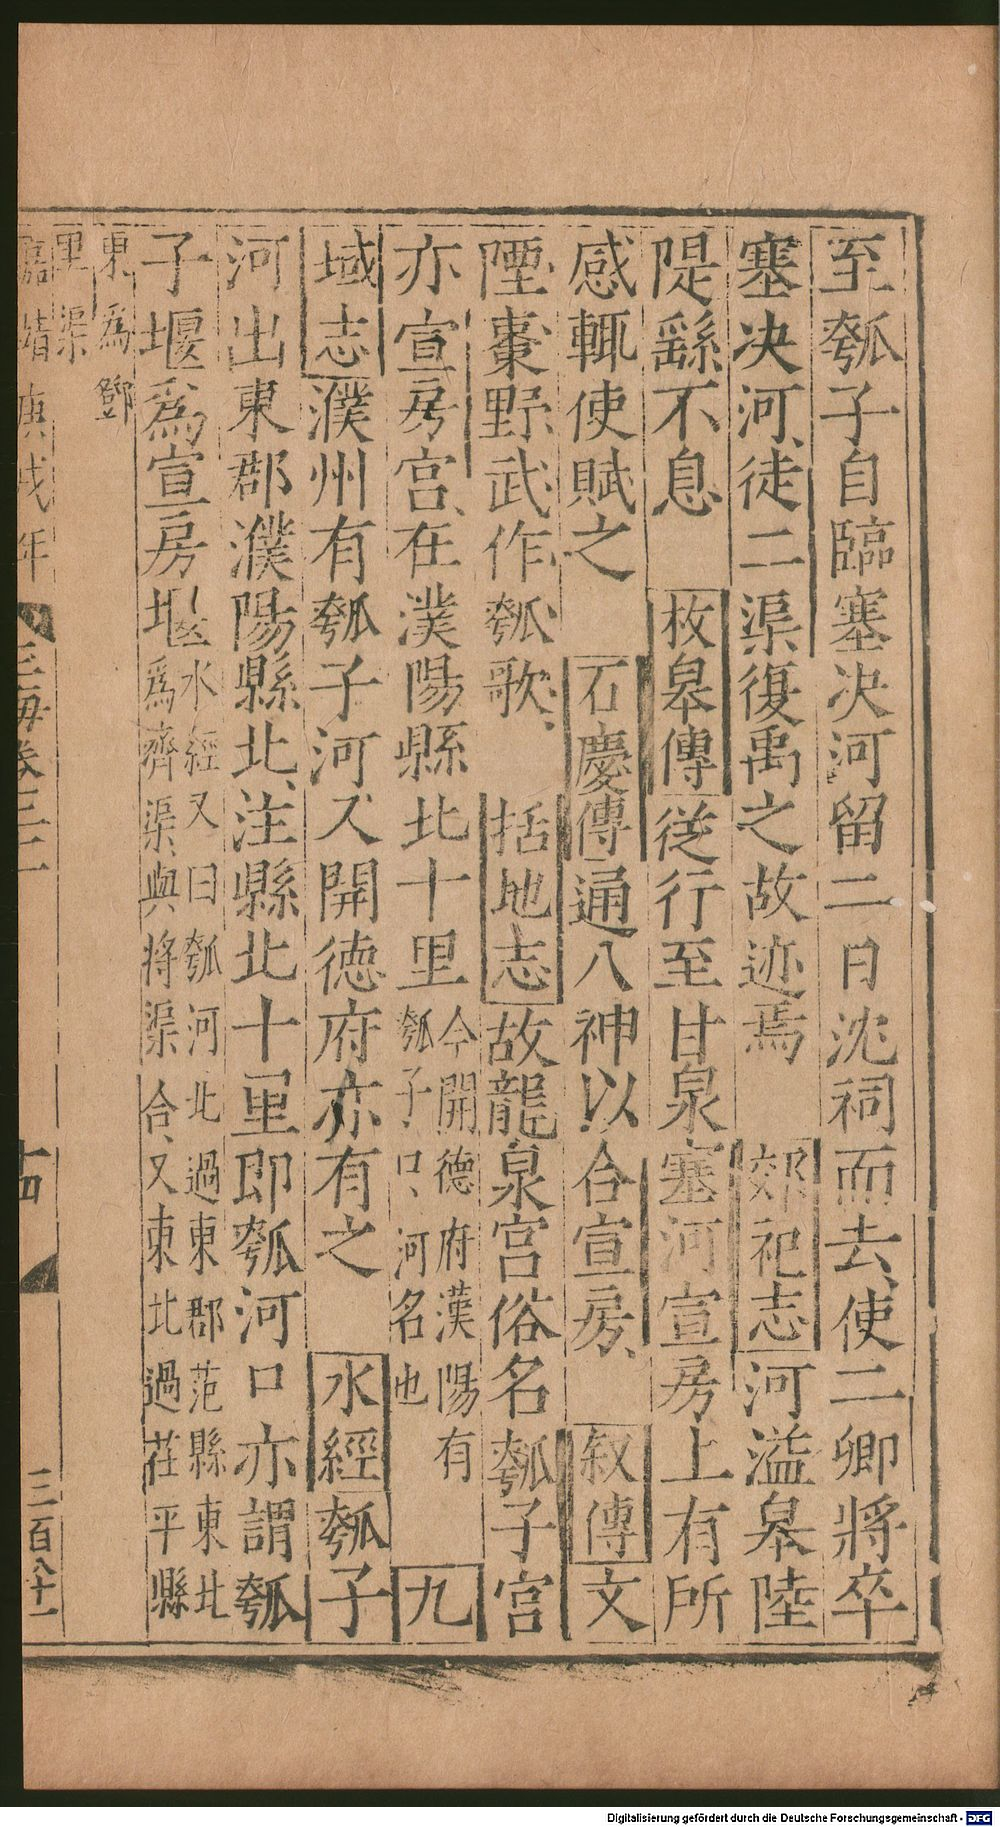 至瓠子自臨塞决河留二日沈祠而去使二卿將卒
塞决河徒二渠復禹之故迹焉 郊祀志河溢皋陸
隄繇不息 枚皋傳從行至甘泉塞河宣房上有所
感輒使賦之 石慶傳通八神以合宣房 叙傳文
陻棗野武作瓠歌 括地志故龍泉宫俗名瓠子宫
亦宣房宫在濮陽縣北十里今開德府漢陽有瓠子口河名也 九
域志濮州有瓠子河又開德府亦有之 水經瓠子
河出東郡濮陽縣北注縣北十里即瓠河口亦謂瓠
子堰爲宣房堰水經又曰瓠河北過東郡范縣東北爲濟渠與將渠合又東北過茌平縣
東爲鄧
里渠
嘉靖庚戌年 玉海卷二 十四 三百八十一
Digitalisierung gefördert durch die Deutsche Forschungsgemeinschaft - DFG